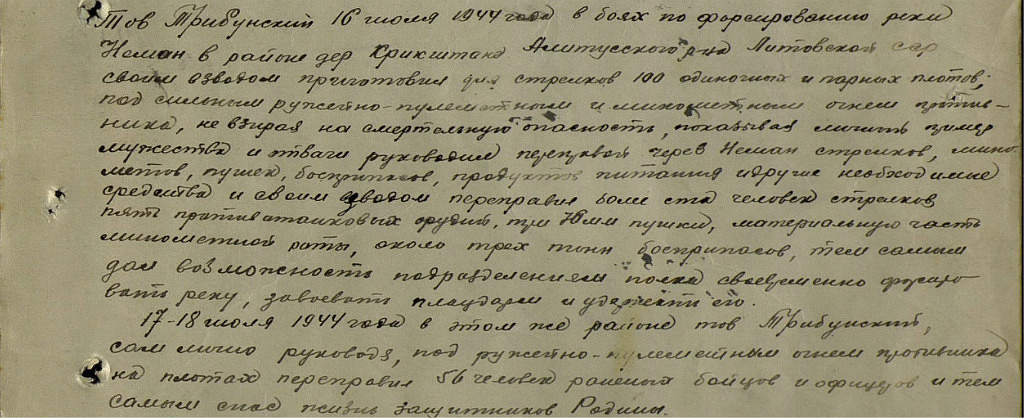 Тов Трибунский 16 июля 1944 года в боях по форсированию реки
Неман в районе дер Крикштаны Алитусского р-на Литовской ССР
своим взводом приготовил для стрелков 100 одиночных и парных плотов,
под сильным ружейно-пулеметным и минометным огнем против-
ника, не взирая на смертельную опасность, показывая личный пример
мужества и отваги руководил переправой через Неман стрелков, мино-
метов, пушек, боеприпасов, продуктов питания и другие необходимые
средства и своим взводом переправил более ста человек стрелков
пять противотанковых орудий, три пушки, материальную часть
минометной роты, около трех тонн боеприпасов, тем самым
дал возможность подразделениям полка своевременно форсиро
вать реку, завоевать плацдарм и удержать его.
17-18 июля 1944 года в этом же районе тов Трибунский,
сам лично руководя, под ружейно-пулеметным огнем противника
на плотах переправил 56 человек раненых бойцов и офицеров и тем
самым спас жизнь защитников Родины.